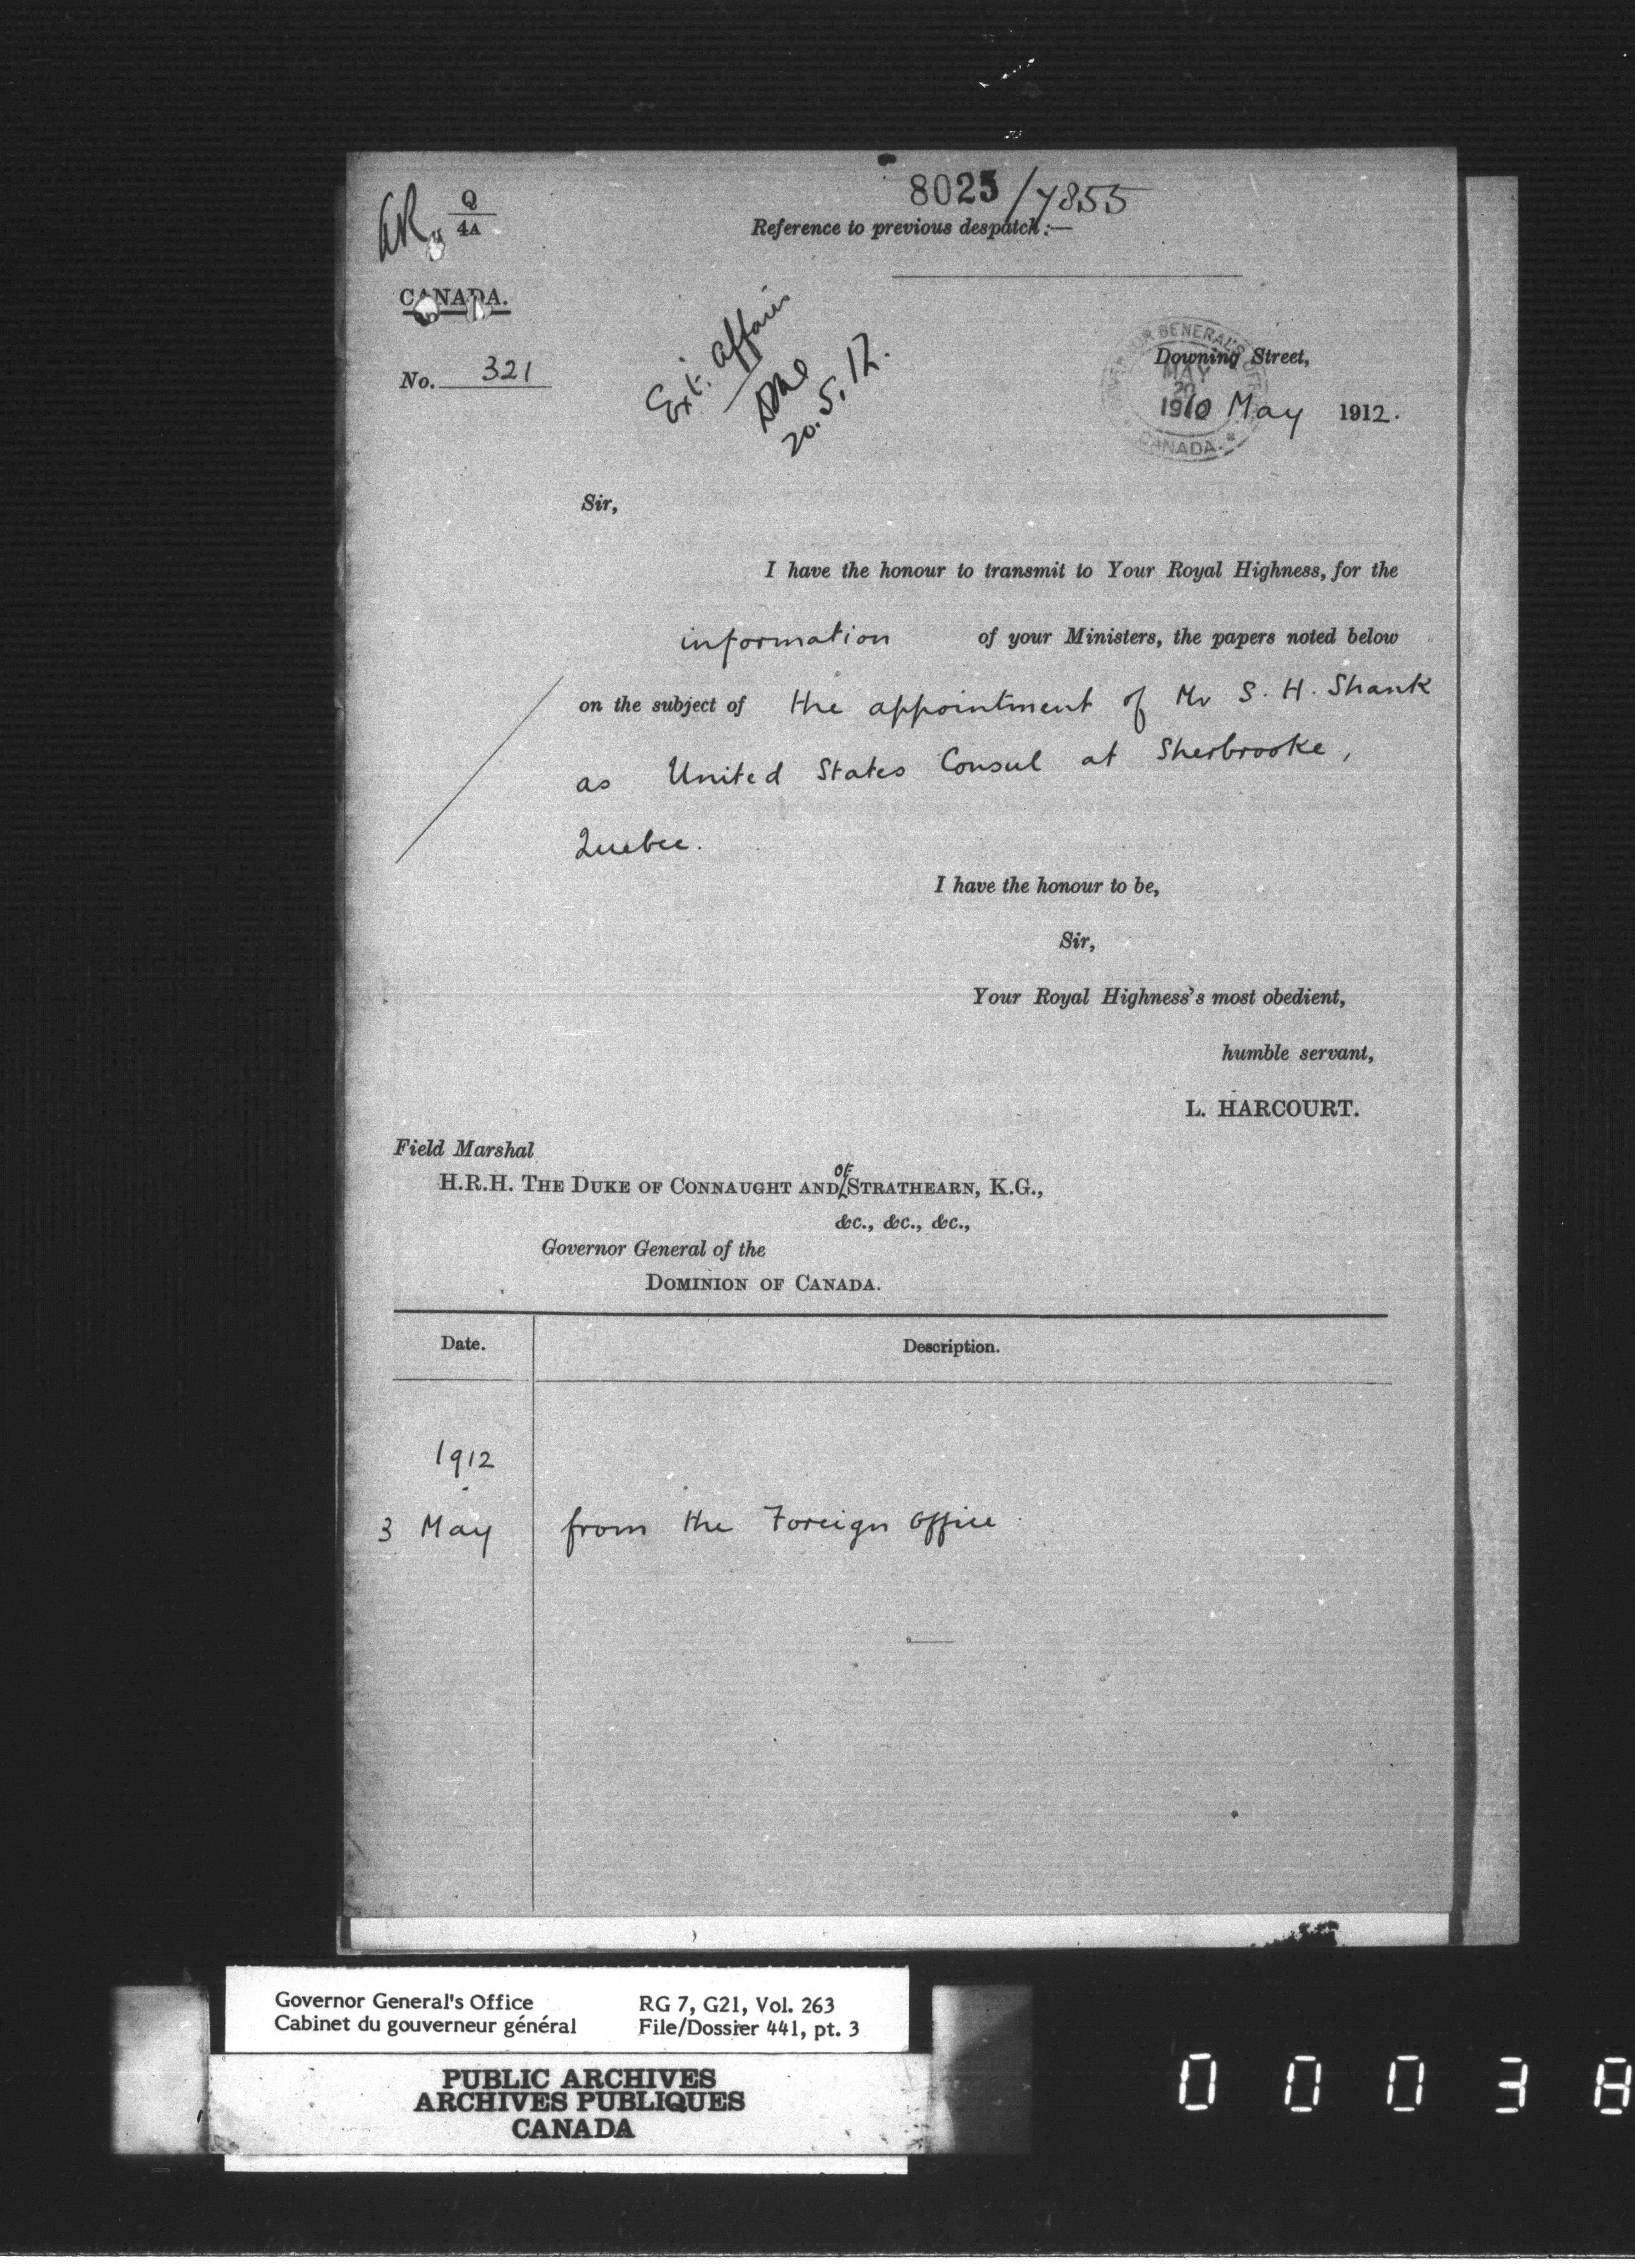 8025/7855
Q
4A
Reference to previous despatch:—
CANADA.
No. 321
Ext. Affairs
20.5.12.
GOVERNOR GENERAL'S OFFICE
MAY
20
CANADA.
Downing Street,
10 May 1912.
Sir,
I have the honour to transmit to Your Royal Highness, for the
information of your Ministers, the papers noted below
on the subject of the appointment of Mr S. H. Shank
as United States Consul at Sherbrooke,
Quebec.
I have the honour to be,
Sir,
Your Royal Highness's most obedient,
humble servant,
L. HARCOURT.
Field Marshal
H.R.H. THE DUKE OF CONNAUGHT AND OF STRATHEARN, K.G.,
&c., &c., &c.,
Governor General of the
DOMINION OF CANADA.
Date. Description.
1912
3 May from the Foreign Office.
Governor General's Office RG 7, G21, Vol. 263
Cabinet du gouverneur général File/Dossier 441, pt. 3
PUBLIC ARCHIVES
ARCHIVES PUBLIQUES
CANADA
00038